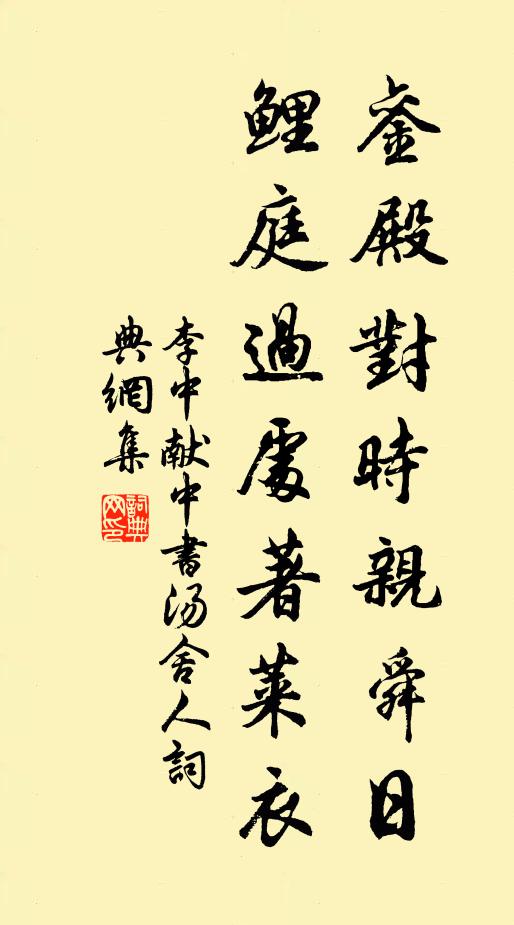 鑾殿對時親舜日
鯉庭過處著萊衣
李中献中書汤舍人詞
典網集
詞典網印